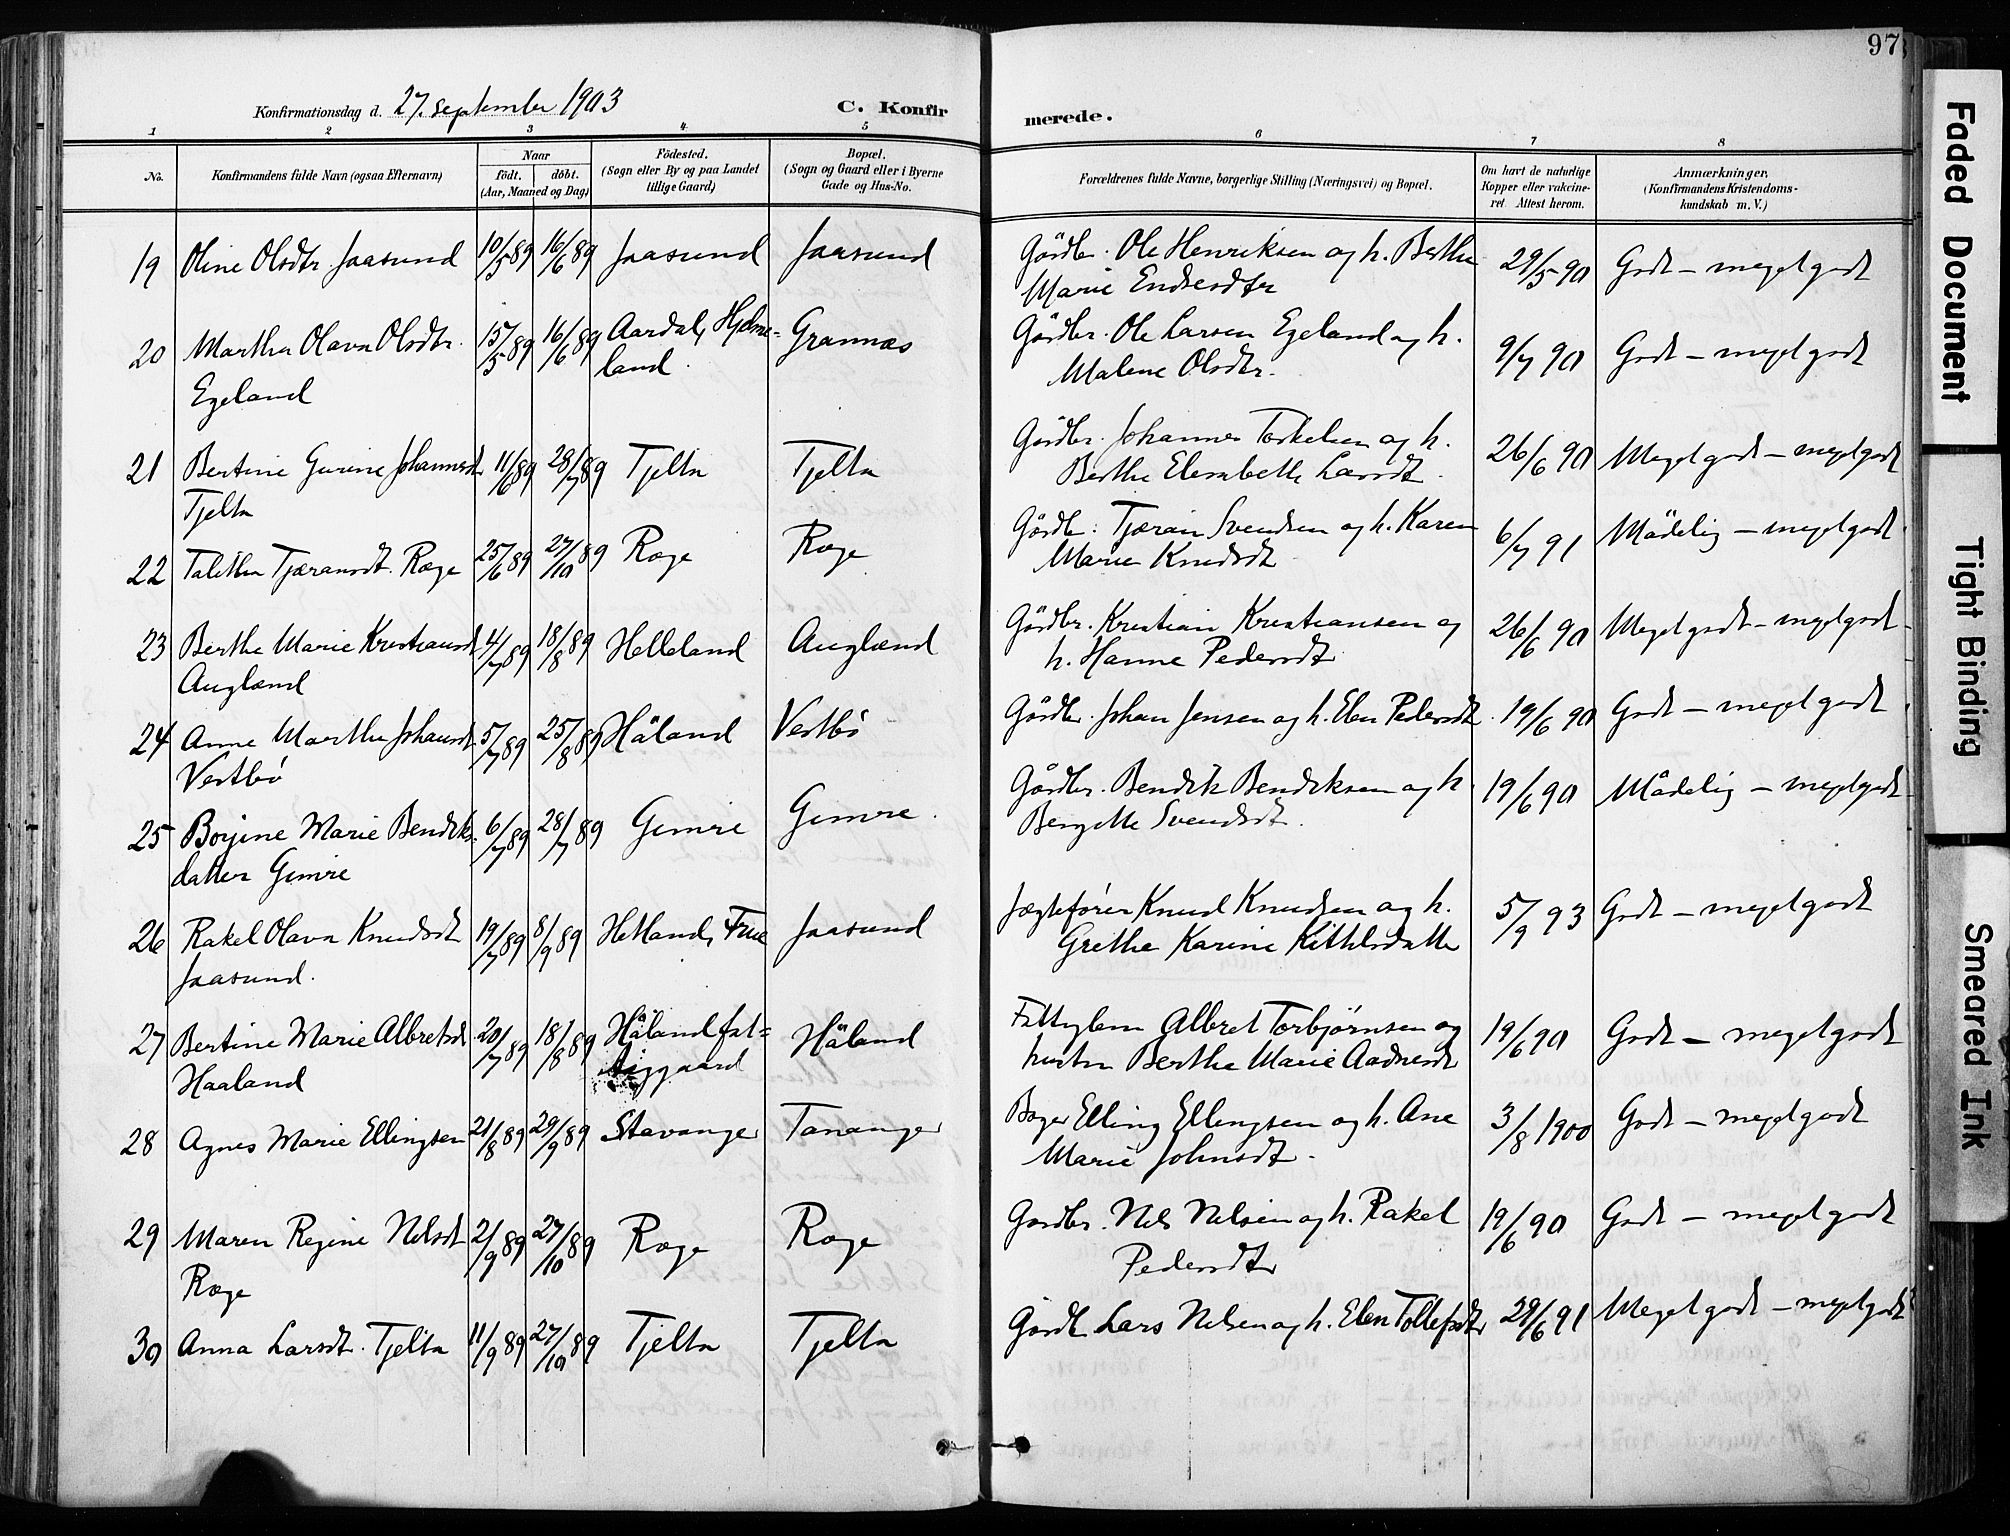 97
Konfirmationsdag d. 27. september 1903
C. Konfirmerede.
1 2 3 4 5 6 7 8
No. Konfirmandens fulde Navn (ogsaa Efternavn) Naar födt. döbt. (Aar, Maaned og Dag) Födested. (Sogn eller By og paa Landet tillige Gaard) Bopæl. (Sogn og Gaard eller i Byerne Gade og Hus-No. Forældrenes fulde Navne, borgerlige Stilling (Næringsvei) og Bopæl. Om havt de naturlige Kopper eller vakcineret. Attest herom. Anmærkninger. (Konfirmandens Kristendomskundskab m. V.)
19 Oline Olsdtr. Jaasund 10/5 89 16/6 89 Jaasund Jaasund Gårdbr. Ole Henriksen og h. Berthe 29/5 90 Godt – meget godt
Marie Endresdtr
20 Martha Olava Olsdtr. 15/5 89 16/6 89 Aardal, Hjelme- Grannæs Gårdbr. Ole Larsen Egeland og h. 9/7 90 Godt – meget godt
Egeland land. Malene Olsdtr.
21 Bertine Gurine Johannesdt 11/6 89 28/7 89 Tjelta Tjelta Gårdbr. Johannes Torkelsen og h. 26/6 90 Meget godt – meget godt
Tjelta Berthe Elisabeth Larsdt.
22 Talitha Tjæransdt. Røge 25/6 89 27/10 89 Røge Røge Gårdbr. Tjæran Svendsen og h. Karen 6/7 91 Mådelig – meget godt
Marie Knudsdt.
23 Berthe Marie Kristiansdt 4/7 89 18/8 89 Helleland Auglænd Gårdbr. Kristian Kristiansen og 26/6 90 Meget godt – meget godt
Auglænd h. Hanne Pedersdt
24 Anne Marthe Johansdt. 5/7 89 25/8 89 Håland Vestbø Gårdbr. Johan Jensen og h. Elen Pedersdt. 19/6 90 Godt – meget godt
Vestbø
25 Borjine Marie Bendiks- 6/7 89 28/7 89 Gimre Gimre. Gårdbr. Bendik Bendiksen og h. 19/6 90 Mådelig – meget godt
datter Gimre Bergitte Svendsdt.
26 Rakel Olava Knudsdt 19/7 89 8/9 89 Hetland, Frue Jaasund Jægtefører Knud Knudsen og h. 5/9 93 Godt – meget godt
Jaasund. Grethe Karine Kittilsdatter
27 Bertine Marie Albretsdt 20/7 89 18/8 89 Håland fat- Håland Fattiglem Albret Torbjørnsen og 19/6 90 Godt – meget godt
Haaland tiggaard hustru Berthe Marie Aadnesdt
28 Agnes Marie Ellingsen 21/8 89 29/9 89 Stavanger Tananger Bager Elling Ellingsen og h. Ane 3/8 1900 Godt – meget godt
Marie Johnsdt.
29 Maren Regine Nilsdt 2/9 89 27/10 89 Røge Røge Gårdbr. Nils Nilsen og h. Rakel 19/6 90 Godt – meget godt
Røge Pedersdtr
30 Anna Larsdt. Tjelta 11/9 89 27/10 89 Tjelta Tjelta Gårdb Lars Nilsen og h. Elen Tollefsdtr 29/6 91 Meget godt – meget godt
Faded Document
Tight Binding
Smeared Ink